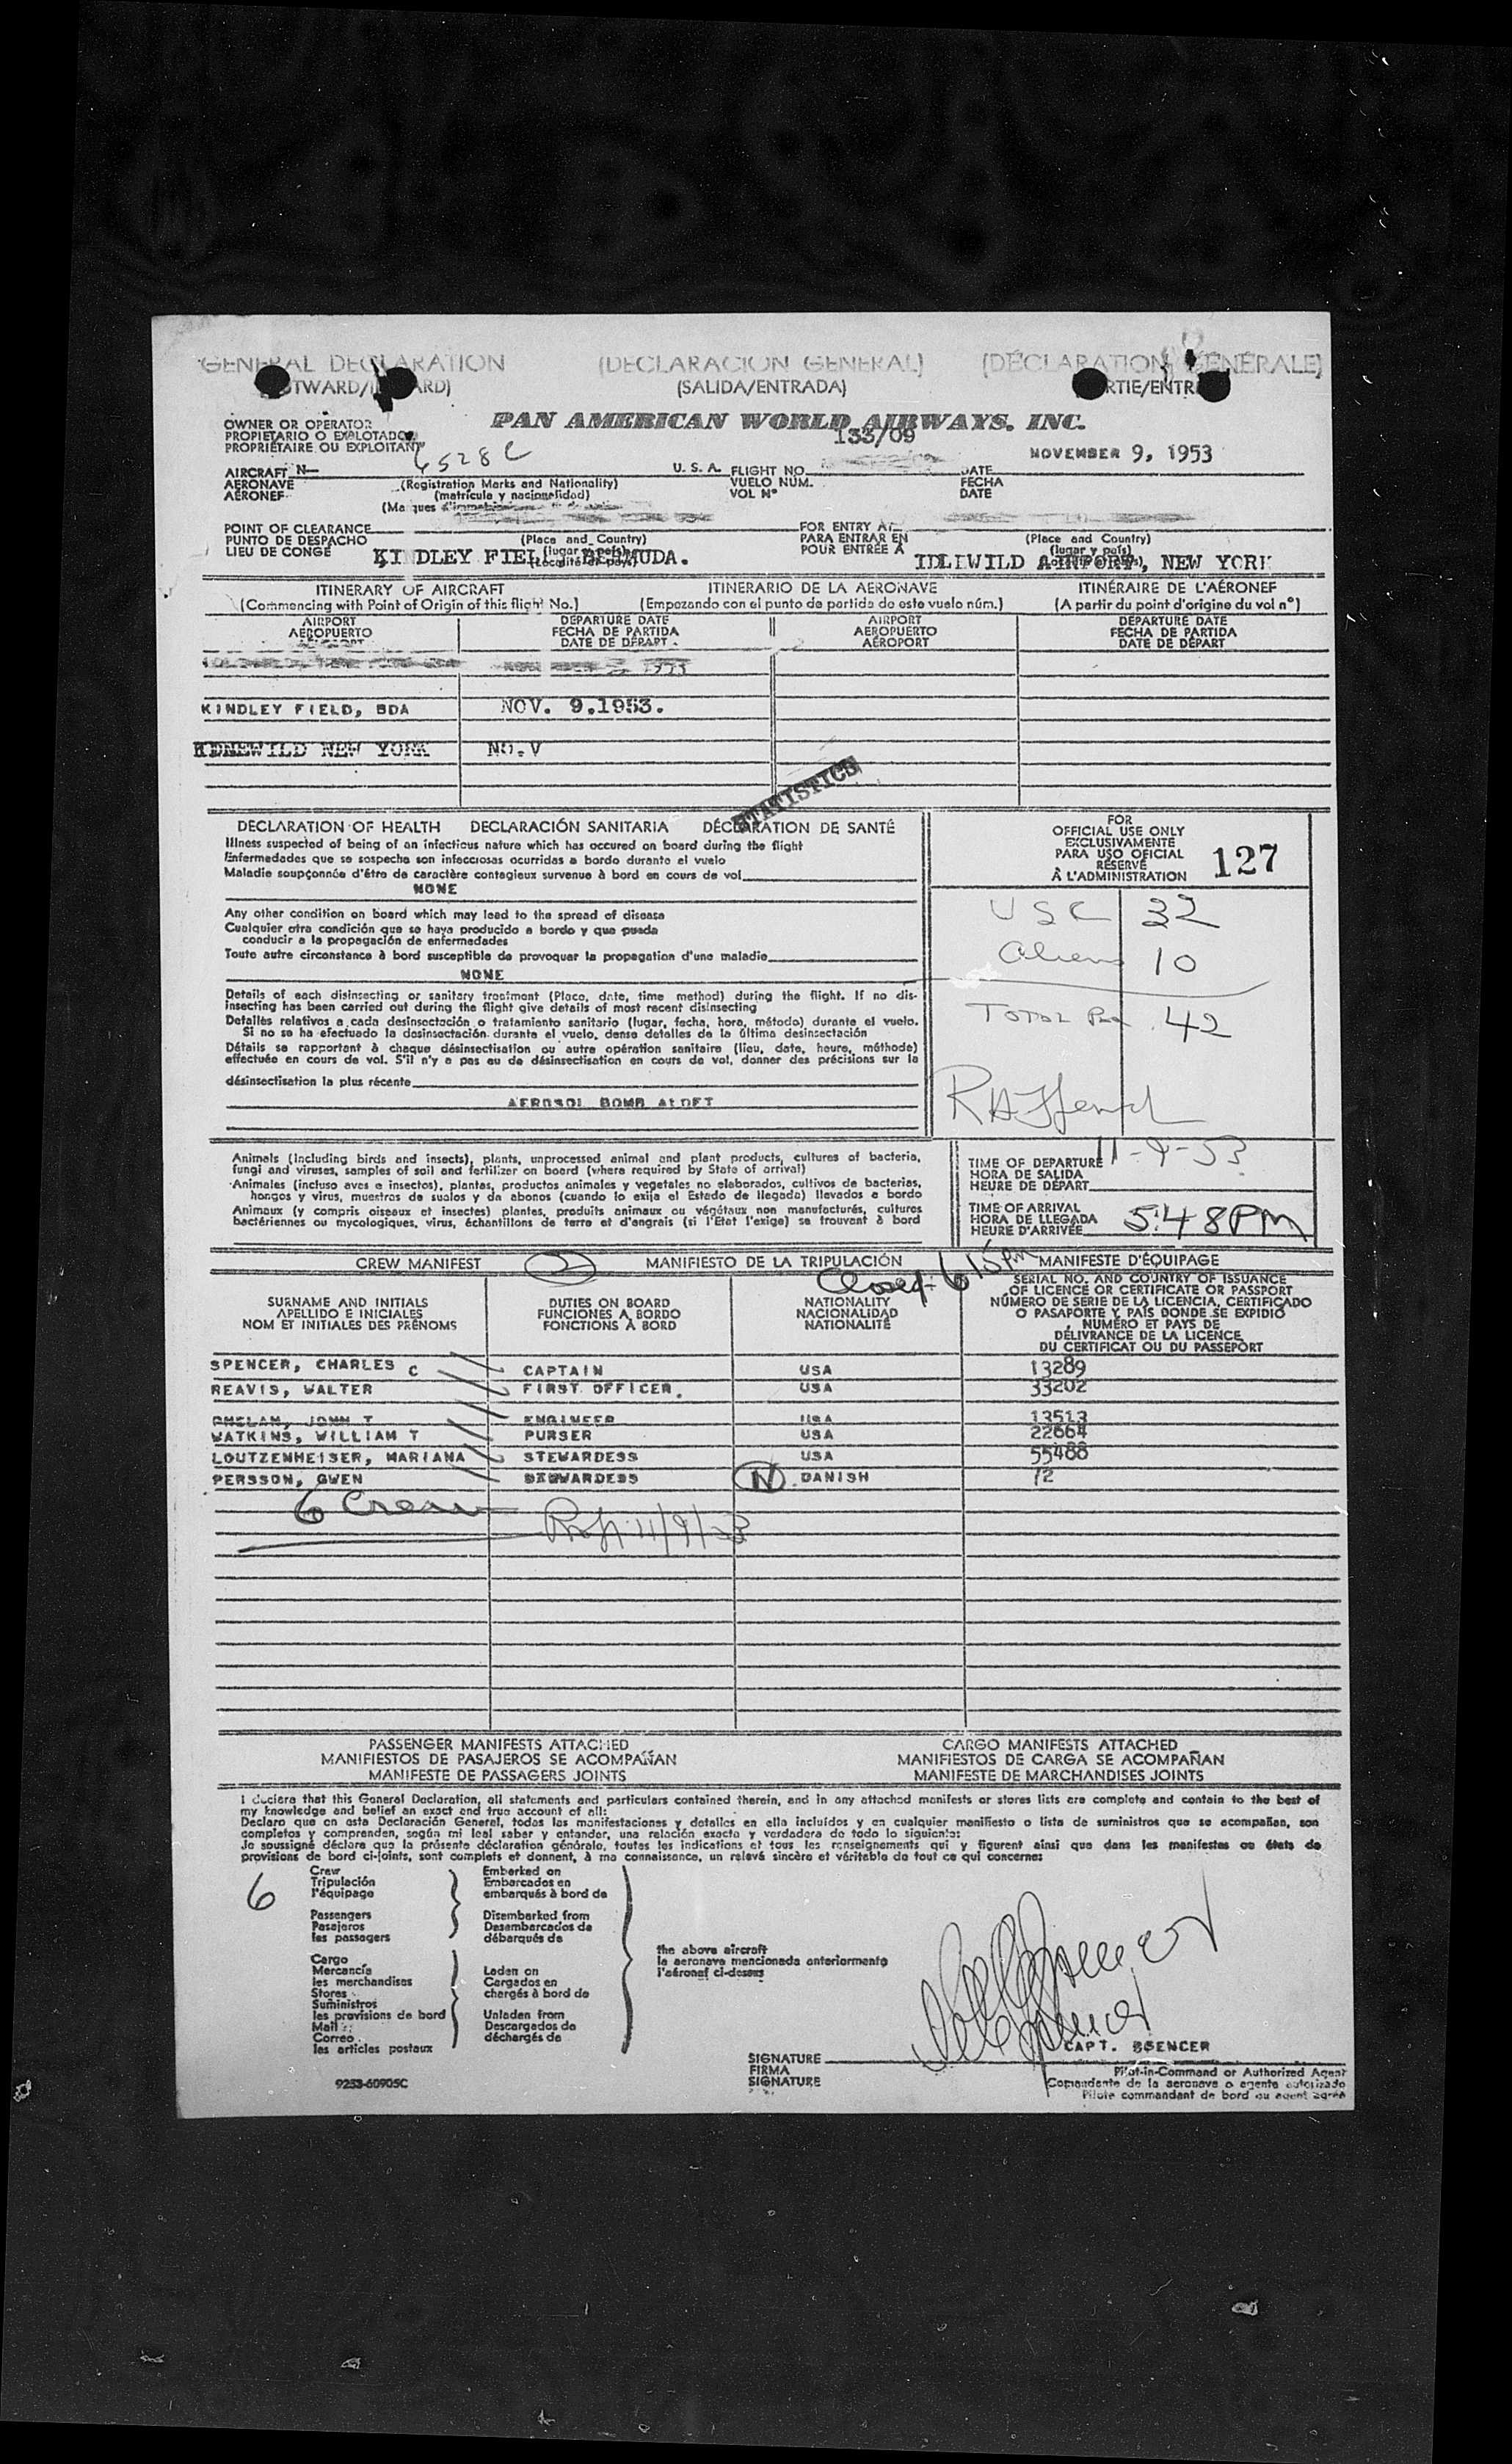 GENERAL DECLARATION (DECLARACION GENERAL) (DÉCLARATION GÉNÉRALE)
(SALIDA/ENTRADA)
OWNER OR OPERATOR PAN AMERICAN WORLD AIRWAYS, INC.
PROPIETARIO O EXPLOTADOR 133/09
PROPRIÉTAIRE OU EXPLOITANT
NOVEMBER 9, 1953
AIRCRAFT N— 6528C U. S. A. FLIGHT NO. DATE
AERONAVE (Registration Marks and Nationality) VUELO NÚM. FECHA
AÉRONEF (matrícula y nacionalidad) VOL Nº DATE
POINT OF CLEARANCE FOR ENTRY AT
PUNTO DE DESPACHO (Place and Country) PARA ENTRAR EN (Place and Country)
LIEU DE CONGÉ (lugar y país) POUR ENTRÉE À (lugar y país)
KINDLEY FIELD, BERMUDA. IDLIWILD AIRPORT, NEW YORK
ITINERARY OF AIRCRAFT ITINERARIO DE LA AERONAVE ITINÉRAIRE DE L'AÉRONEF
(Commencing with Point of Origin of this flight No.) (Empezando con el punto de partida de este vuelo núm.) (A partir du point d'origine du vol nº)
AIRPORT DEPARTURE DATE AIRPORT DEPARTURE DATE
AEROPUERTO FECHA DE PARTIDA AEROPUERTO FECHA DE PARTIDA
DATE DE DÉPART AÉROPORT DATE DE DÉPART
KINDLEY FIELD, BDA NOV. 9.1953.
NEW YORK NO.V
STATISTICS
DECLARATION OF HEALTH DECLARACIÓN SANITARIA DÉCLARATION DE SANTÉ
Illness suspected of being of an infectious nature which has occured on board during the flight
Enfermedades que se sospecha son infecciosas ocurridas a bordo durante el vuelo
Maladie soupçonnée d'être de caractère contagieux survenue à bord en cours de vol
NONE
Any other condition on board which may lead to the spread of disease
Cualquier otra condición que se haya producido a bordo y que pueda
conducir a la propagación de enfermedades
Toute autre circonstance à bord susceptible de provoquer la propagation d'une maladie
NONE
Details of each disinsecting or sanitary treatment (Place, date, time method) during the flight. If no dis-
insecting has been carried out during the flight give details of most recent disinsecting
Detalles relativos a cada desinsectación o tratamiento sanitario (lugar, fecha, hora, método) durante el vuelo.
Si no se ha efectuado la desinsectación durante el vuelo, dense detalles de la última desinsectación
Détails se rapportant à chaque désinsectisation ou autre opération sanitaire (lieu, date, heure, méthode)
effectuée en cours de vol. S'il n'y a pas eu de désinsectisation en cours de vol, donner des précisions sur la
désinsectisation la plus récente
AEROSOL BOMB ALOFT
FOR
OFFICIAL USE ONLY
EXCLUSIVAMENTE
PARA USO OFICIAL
RÉSERVÉ
À L'ADMINISTRATION
127
USC 32
Aliens 10
Total Pax 42
11-9-53
Animals (including birds and insects), plants, unprocessed animal and plant products, cultures of bacteria,
fungi and viruses, samples of soil and fertilizer on board (where required by State of arrival)
Animales (incluso aves e insectos), plantas, productos animales y vegetales no elaborados, cultivos de bacterias,
hongos y virus, muestras de suelos y de abonos (cuando lo exija el Estado de llegada) llevados a bordo
Animaux (y compris oiseaux et insectes) plantes, produits animaux ou végétaux non manufacturés, cultures
bactériennes ou mycologiques, virus, échantillons de terre et d'engrais (si l'Etat l'exige) se trouvant à bord
TIME OF DEPARTURE
HORA DE SALIDA
HEURE DE DÉPART
TIME OF ARRIVAL
HORA DE LLEGADA
HEURE D'ARRIVÉE 5:48PM
CREW MANIFEST 2 MANIFIESTO DE LA TRIPULACIÓN MANIFESTE D'ÉQUIPAGE
Closed- 6 15 pm
SURNAME AND INITIALS DUTIES ON BOARD NATIONALITY SERIAL NO. AND COUNTRY OF ISSUANCE
APELLIDO E INICIALES FUNCIONES A BORDO NACIONALIDAD OF LICENCE OR CERTIFICATE OR PASSPORT
NOM ET INITIALES DES PRÉNOMS FONCTIONS À BORD NATIONALITÉ NÚMERO DE SERIE DE LA LICENCIA, CERTIFICADO
O PASAPORTE Y PAÍS DONDE SE EXPIDIÓ
NUMÉRO ET PAYS DE
DÉLIVRANCE DE LA LICENCE
DU CERTIFICAT OU DU PASSEPORT
SPENCER, CHARLES C CAPTAIN USA 13289
REAVIS, WALTER FIRST OFFICER. USA 33202
PHELAN, JOHN T ENGINEER USA 13513
WATKINS, WILLIAM T PURSER USA 22664
LOUTZENHEISER, MARIANA STEWARDESS USA 55488
PERSSON, GWEN STEWARDESS N DANISH 72
6 Crew
11/9/53
PASSENGER MANIFESTS ATTACHED CARGO MANIFESTS ATTACHED
MANIFIESTOS DE PASAJEROS SE ACOMPAÑAN MANIFIESTOS DE CARGA SE ACOMPAÑAN
MANIFESTE DE PASSAGERS JOINTS MANIFESTE DE MARCHANDISES JOINTS
I declare that this General Declaration, all statements and particulars contained therein, and in any attached manifests or stores lists are complete and contain to the best of
my knowledge and belief an exact and true account of all:
Declaro que en esta Declaración General, todas las manifestaciones y detalles en ella incluidos y en cualquier manifiesto o lista de suministros que se acompañan, son
completos y comprenden, según mi leal saber y entender, una relación exacta y verdadera de todo lo siguiente:
Je soussigné déclare que la présente déclaration générale, toutes les indications et tous les renseignements qui y figurent ainsi que dans les manifestes ou états de
provisions de bord ci-joints, sont complets et donnent, à ma connaissance, un relevé sincère et véritable de tout ce qui concerne:
6
Crew Embarked on
Tripulación Embarcados en
l'équipage embarqués à bord de
Passengers Disembarked from
Pasajeros Desembarcados de
les passagers débarqués de
the above aircraft
la aeronave mencionada anteriormente
l'aéronef ci-dessus
Cargo
Mercancía Laden on
les merchandises Cargados en
Stores chargés à bord de
Suministros
les provisions de bord Unladen from
Mail Descargados de
Correo déchargés de
les articles postaux
CAPT. SPENCER
SIGNATURE
FIRMA
SIGNATURE
Pilot-in-Command or Authorized Agent
Comandante de la aeronave o agente autorizado
Pilote commandant de bord ou agent agréé
9253-60905C